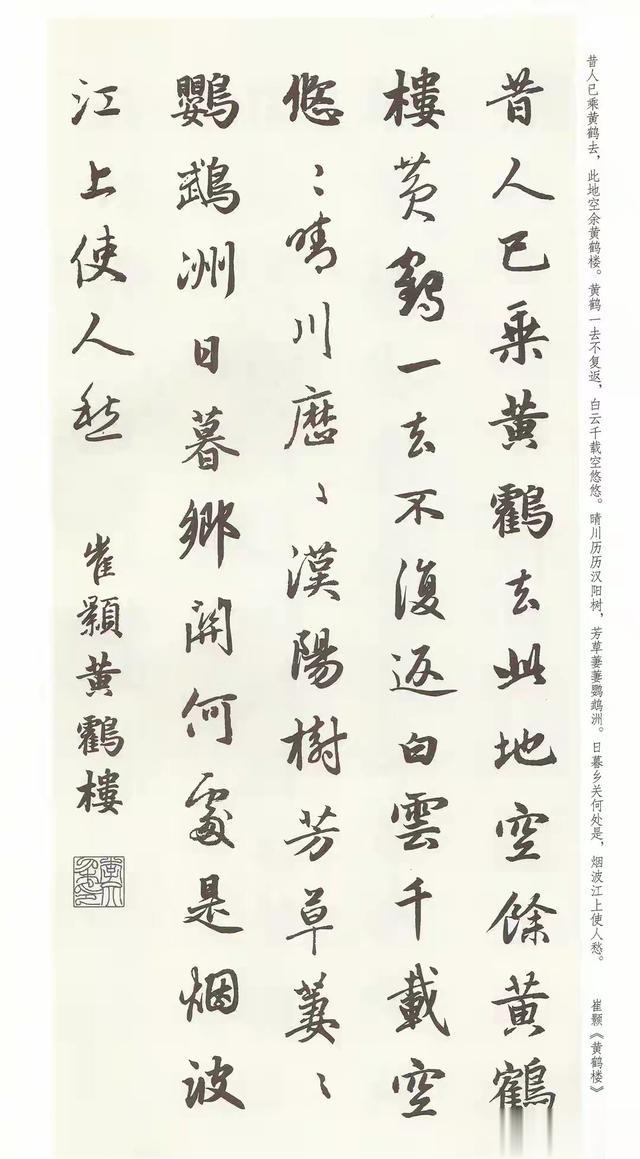 昔人已乘黄鹤去，此地空余黄鹤楼。黄鹤一去不复返，白云千载空悠悠。晴川历历汉阳树，芳草萋萋鹦鹉洲。日暮乡关何处是，烟波江上使人愁。 崔颢《黄鹤楼》
昔人已乘黄鸖去此地空餘黄鶴
樓黄鶴一去不復返白雲千載空
悠〻晴川歷〻漢陽樹芳草萋〻
鸚鵡洲日暮鄉關何處是烟波
江上使人愁
崔顥黄鸖樓